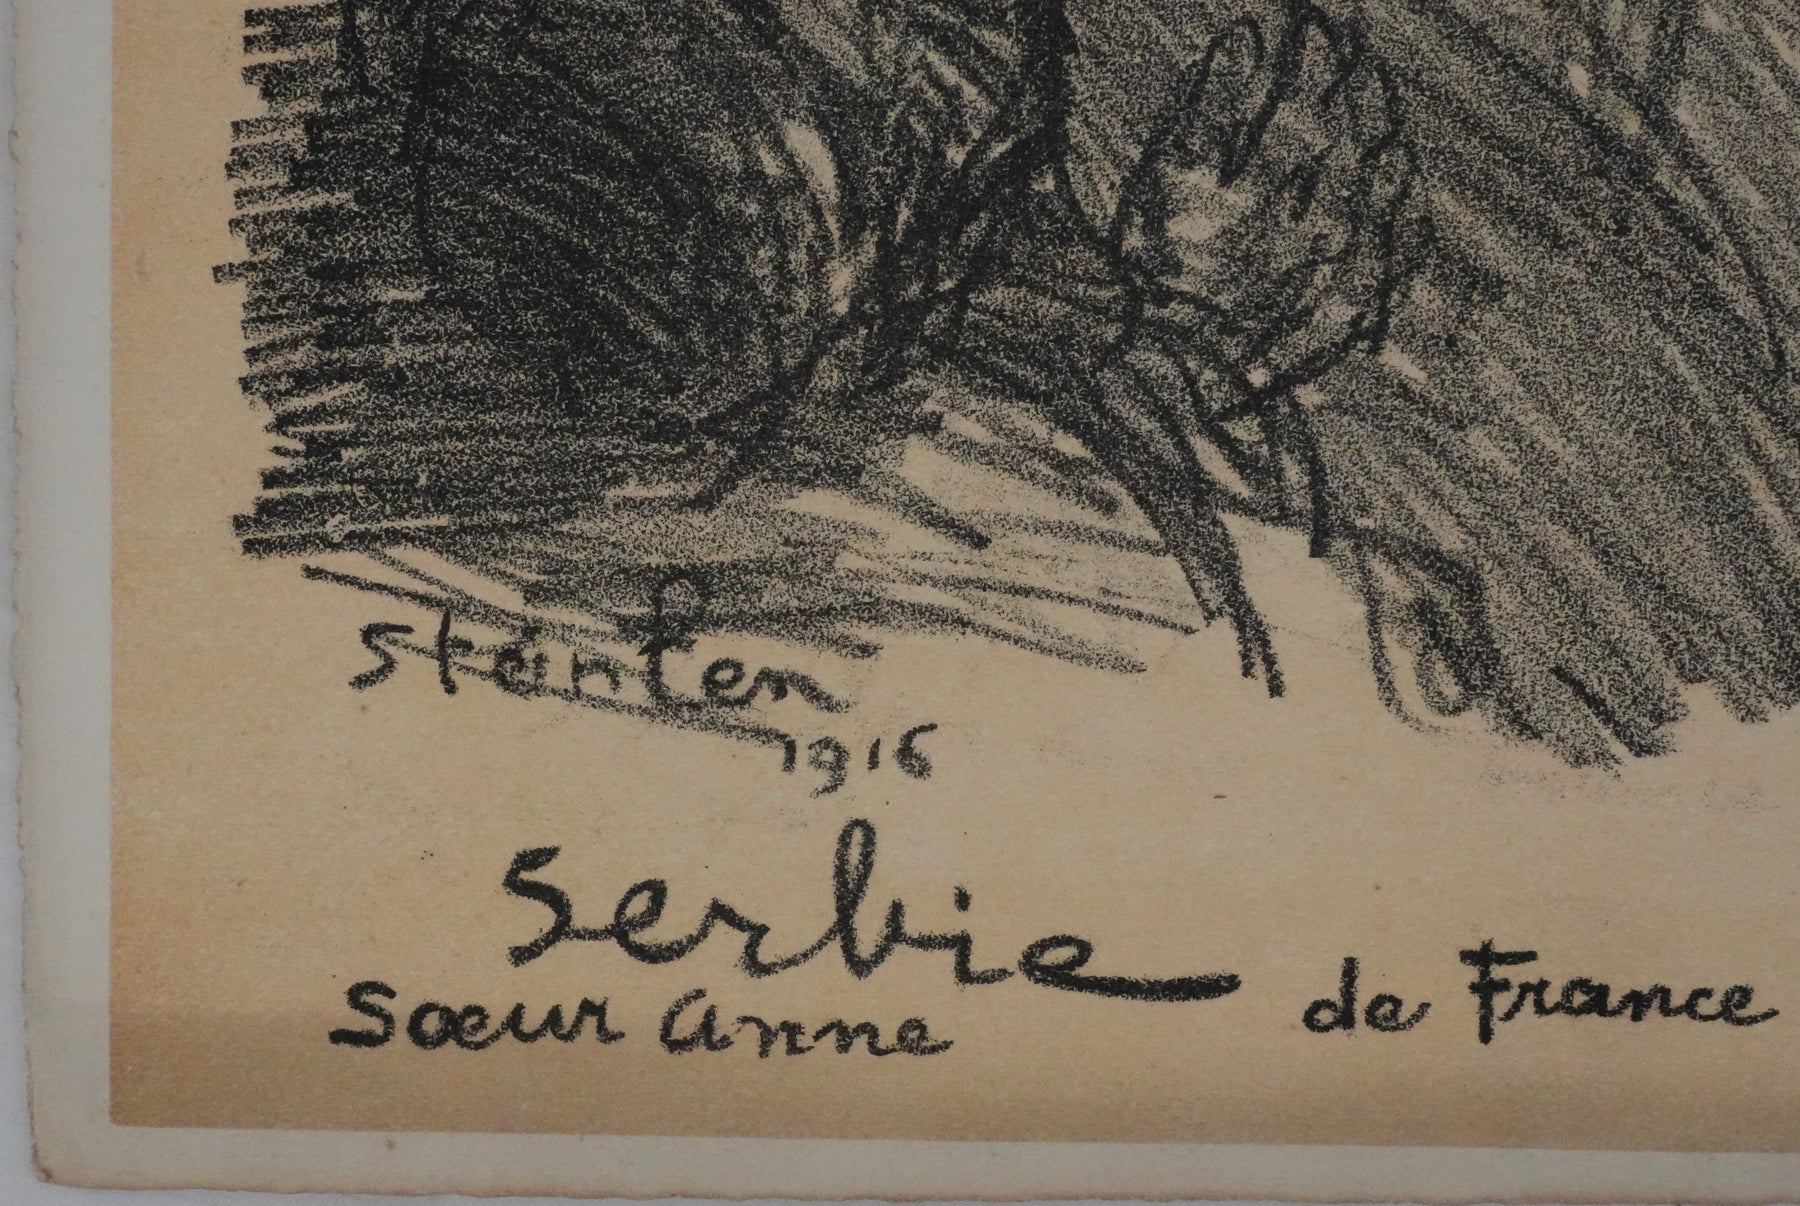 Steinlen
1916
Serbie
Sœur Anne de France